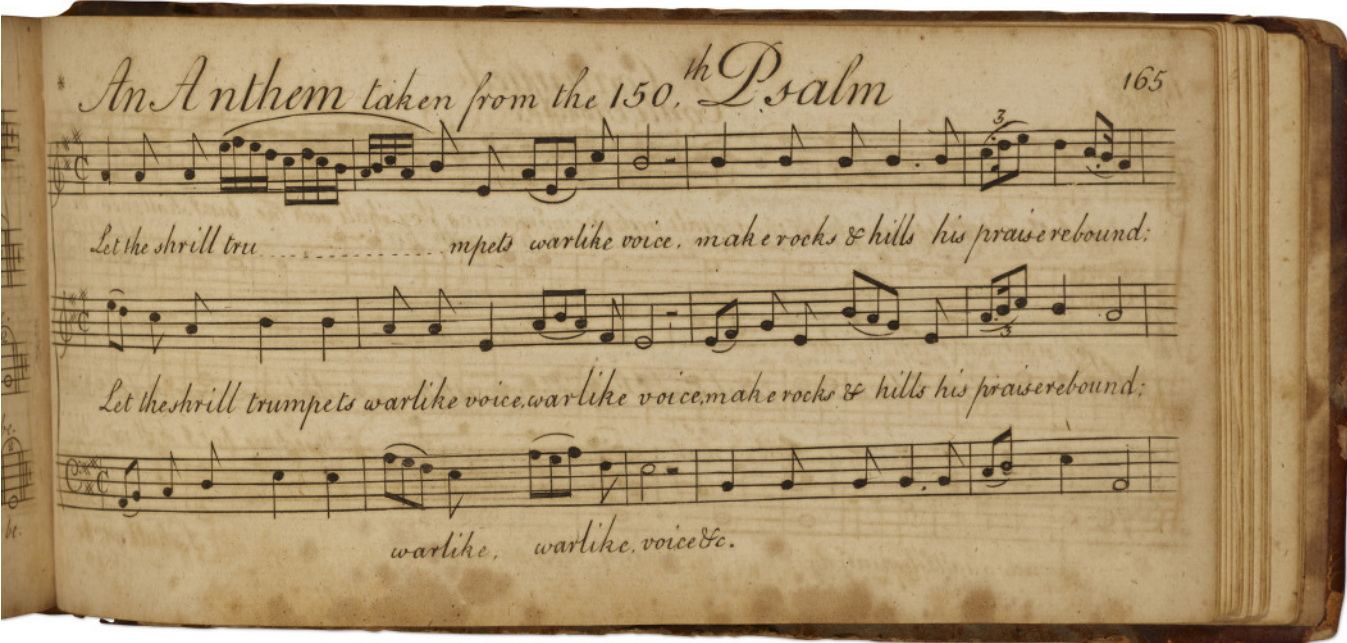 An Anthem taken from the 150.th Psalm
165
3
Let the shrill tru.................mpets warlike voice. make rocks & hills his praise rebound;
3
Let the shrill trumpets warlike voice, warlike voice, make rocks & hills his praise rebound;
be.
warlike, warlike, voice &c.